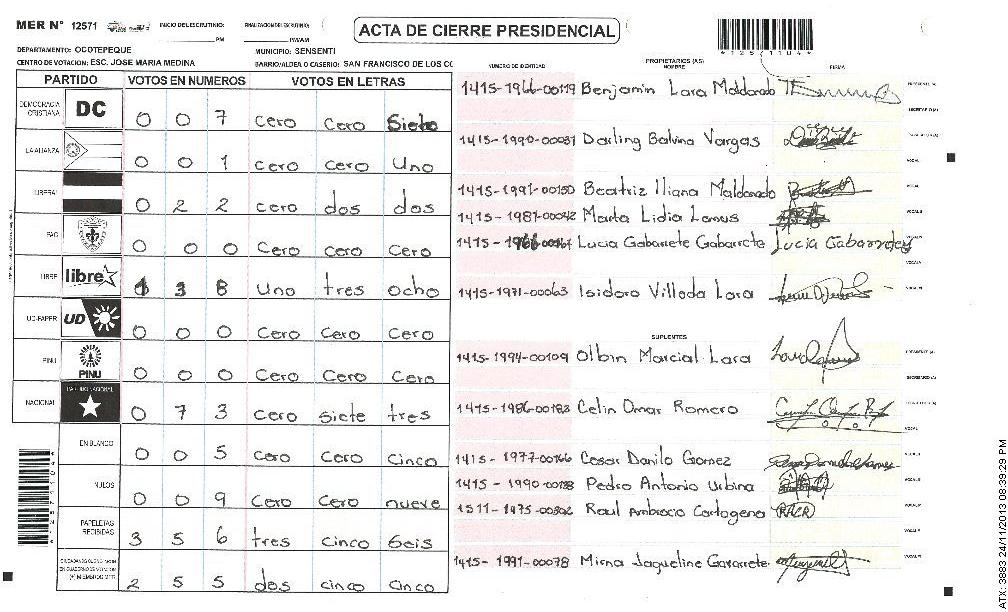 MER N° 12571
INICIO DEL ESCRUTINIO: PM
FINALIZACION DEL ESCRUTINIO: PM/AM
ACTA DE CIERRE PRESIDENCIAL
*12571104*
DEPARTAMENTO: OCOTEPEQUE
MUNICIPIO: SENSENTI
CENTRO DE VOTACION: ESC. JOSE MARIA MEDINA
BARRIO/ALDEA O CASERIO: SAN FRANCISCO DE LOS CO
PARTIDO VOTOS EN NUMEROS VOTOS EN LETRAS
DEMOCRACIA CRISTIANA DC 0 0 7 cero cero Siete
LA ALIANZA 0 0 1 cero cero Uno
LIBERAL 0 2 2 cero dos dos
PAC 0 0 0 Cero cero Cero
LIBRE libre 1 3 8 uno tres ocho
UD-FAPER UD 0 0 0 Cero cero Cero
PINU PINU 0 0 0 Cero Cero Cero
NACIONAL PARTIDO NACIONAL 0 7 3 cero siete tres
EN BLANCO 0 0 5 cero cero cinco
NULOS 0 0 9 Cero Cero nueve
PAPELETAS RECIBIDAS 3 5 6 tres cinco Seis
2 5 5 dos cinco cinco
NUMERO DE IDENTIDAD PROPIETARIOS (AS) NOMBRE FIRMA
1415-1966-00119 Benjamin Lara Maldonado PRESIDENTE (A)
SECRETARIO (A)
1415-1990-00037 Darling Balvina Vargas
VOCAL
1415-1991-00150 Beatriz Iliana Maldonado
1415-1987-00042 Marta Lidia Lemus
Lucia Gabarrete Gabarrete Lucia Gabarrete
1415-1971-00063 Isidoro Villeda Lara
SUPLENTES
1415-1994-00109 Olbin Marcial Lara PRESIDENTE (A)
SECRETARIO (A)
1415-1986-00183 Celin Omar Romero
VOCAL
1415-1977-00166 Cesar Danilo Gomez
1415-1990-00188 Pedro Antonio Urbina
Raul Ambrocio Cartagena
1415-1991-00078 Mirna Jaqueline Gavarrete
ATX: 3883 24/11/2013 08:39:29 PM